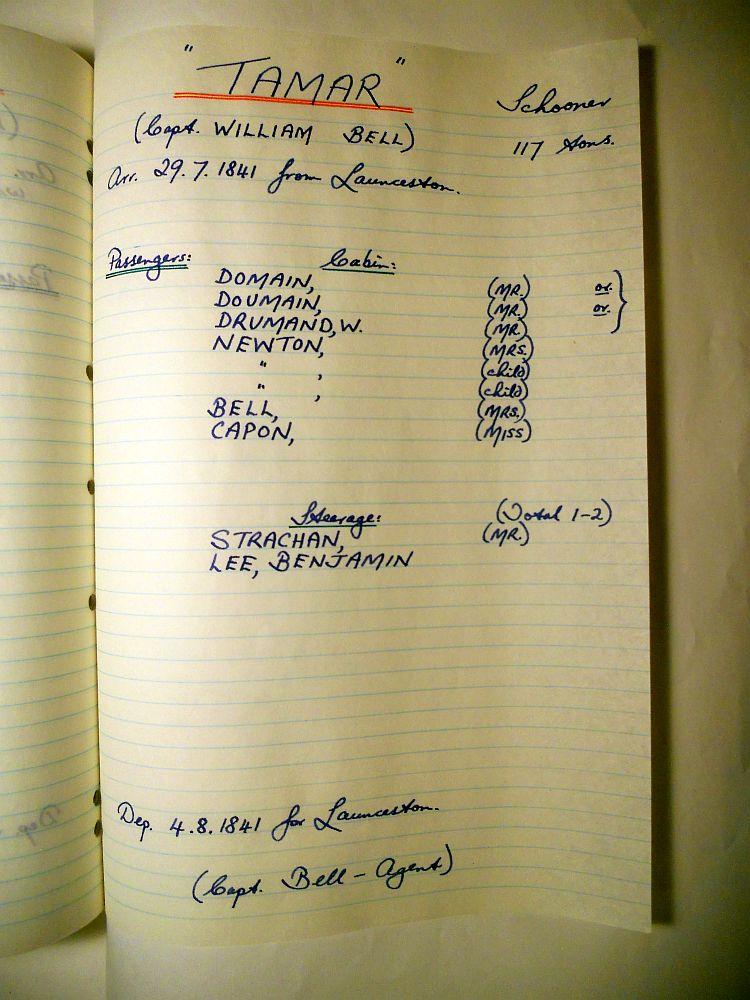 "TAMAR"
Schooner
(Capt. WILLIAM BELL)
117 tons.
Arr. 29.7.1841 from Launceston.
Passengers: Cabin:
DOMAIN, (MR.) or.
DOUMAIN, (MR.) or.
DRUMAND, W. (MR.)
NEWTON, (MRS.)
" , (child)
" , (child)
BELL, (MRS.)
CAPON, (MISS)
Steerage: (Total 1-2)
STRACHAN, (MR.)
LEE, BENJAMIN
Dep. 4.8.1841 for Launceston.
(Capt. Bell - Agent)